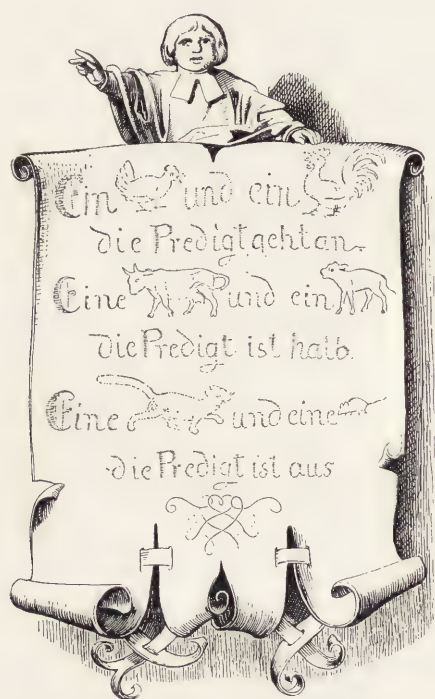 Ein und ein
die Predigt geht an.
Eine und ein
die Predigt ist halb.
Eine und eine
die Predigt ist aus